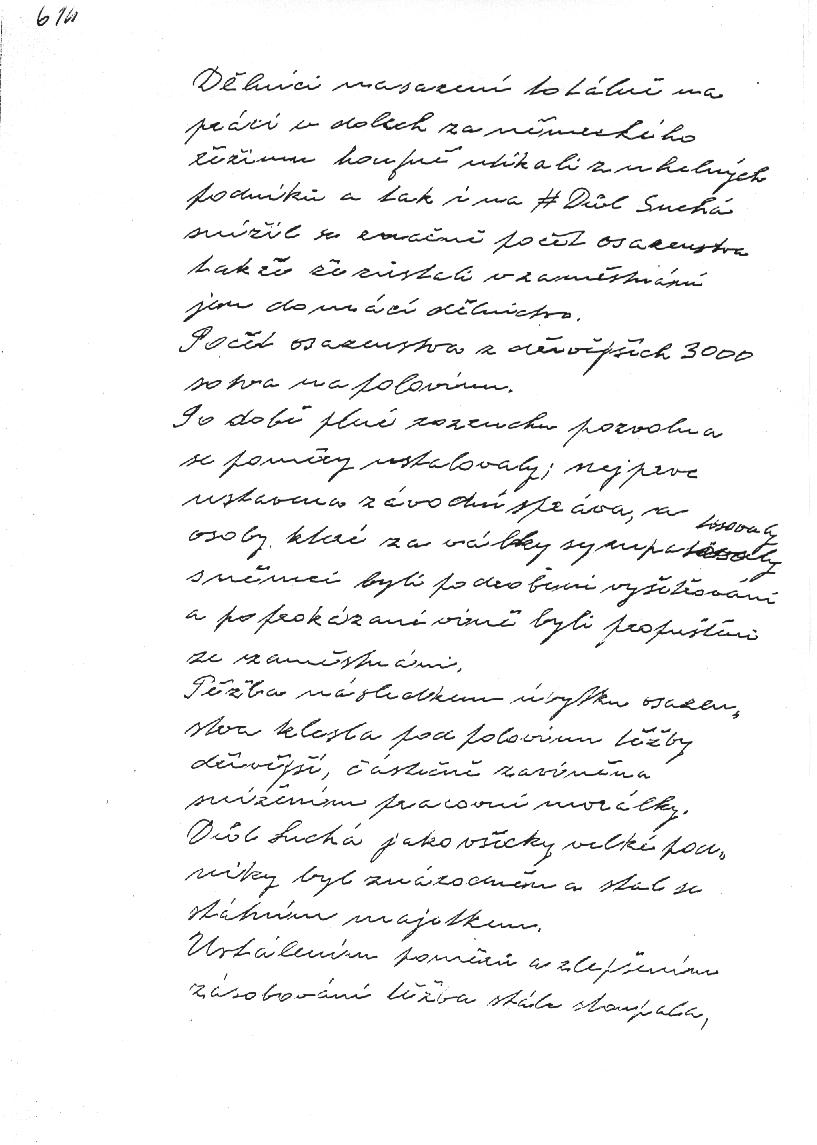 Dělníci nasazení totálně na
práci v dolech za německého
režimu houfně utíkali z uhelných
podniků a tak i na # Důl Suchá
snížil se značně počet osazenstva
takže že zůstali v zaměstnání
jen domácí dělnictvo.
Počet osazenstva z dřívějších 3000
sotva na polovinu.
Po době plné rozruchu pozvolna
se poměry ustalovaly; nejprve
ustavena závodní správa, a
osoby které za války sympatisovaly
s němci byli podrobeni vyšetřování
a po prokázané vině byli propuštěni
ze zaměstnání.
Těžba následkem úbytku osazen„
stva klesla pod polovinu těžby
dřívější, částečně zaviněna
snížením pracovní morálky.
Důl Suchá jako všecky velké pod„
niky byl znárodněn a stal se
státním majetkem.
Ustálením poměrů a zlepšením
zásobování těžba stále stoupala,